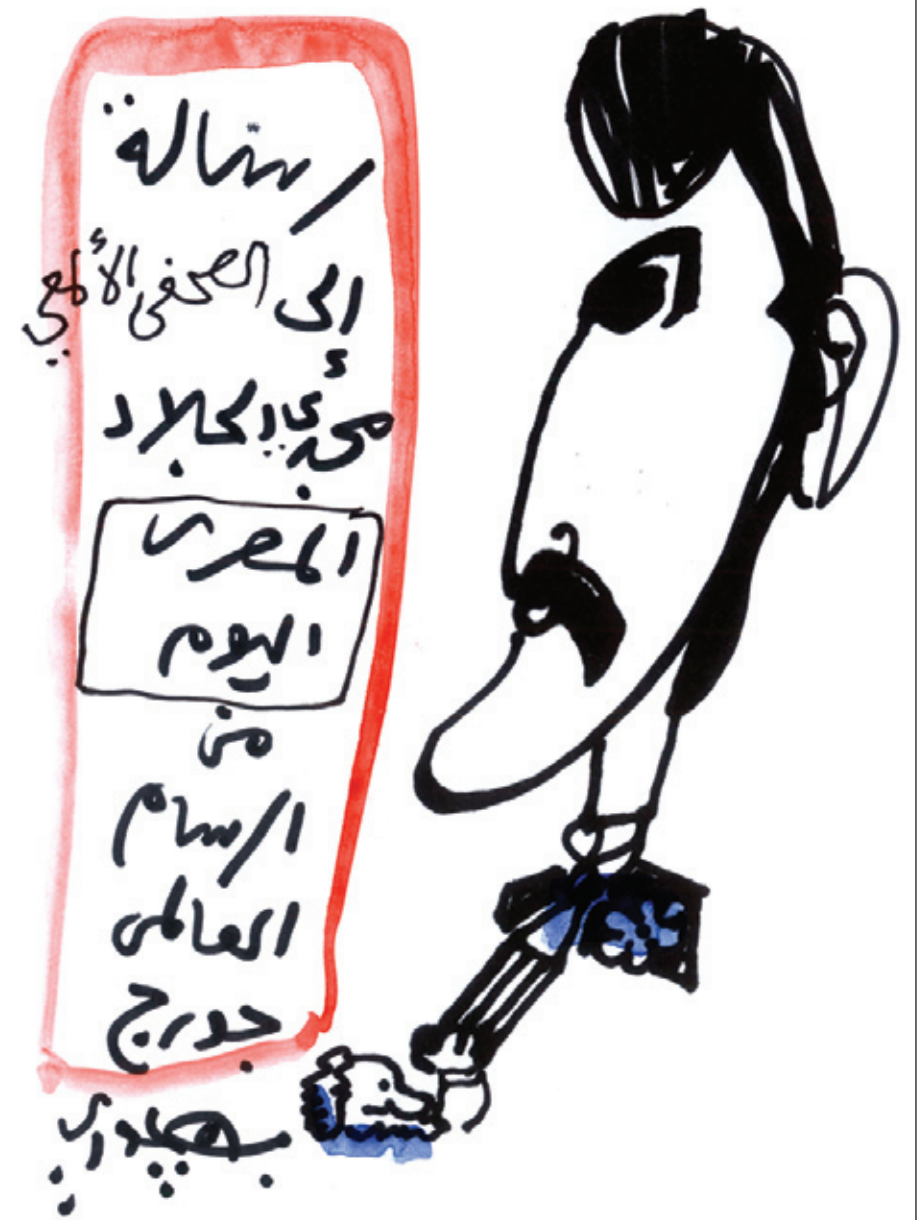 رسالة
إلى الصحفى الألمعي
مجدي الجلاد
المصرى
اليوم
من
الرسام
العالمى
جورج
بهجوري